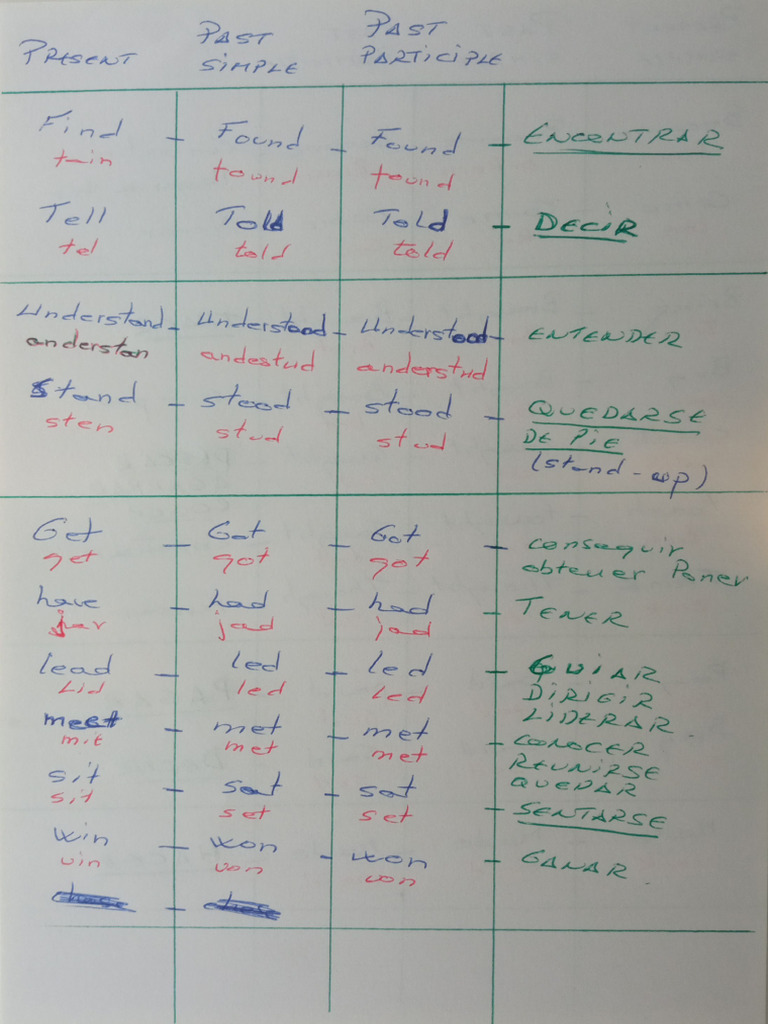 PRESENT PAST SIMPLE PAST PARTICIPLE
Find - Found - Found - ENCONTRAR
found found
Tell Told Told - DECIR
tel told told
Understand - Understood - Understood - ENTENDER
anderstan andestud anderstud
Stand - stood - stood - QUEDARSE
sten stud stud DE PIE
(stand-up)
Get - Got - Got - conseguir
get got got obtener Poner
have - had - had - TENER
jav jad jad
lead - led - led - GUIAR
Lid led led DIRIGIR
LIDERAR
meet - met - met - CONOCER
mit met met REUNIRSE
QUEDAR
sit - sat - sat - SENTARSE
sit set set
win - won - won - GANAR.
uin uon uon